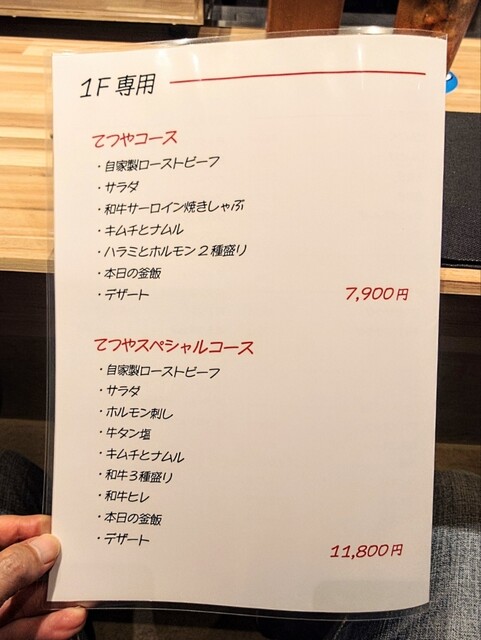 1F専用
てつやコース
・自家製ローストビーフ
・サラダ
・和牛サーロイン焼きしゃぶ
・キムチとナムル
・ハラミとホルモン2種盛り
・本日の釜飯
・デザート
7,900円
てつやスペシャルコース
・自家製ローストビーフ
・サラダ
・ホルモン刺し
・牛タン塩
・キムチとナムル
・和牛3種盛り
・和牛ヒレ
・本日の釜飯
・デザート
11,800円